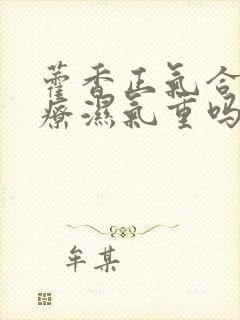 藿香正氣合
療濕氣重吗
牟某